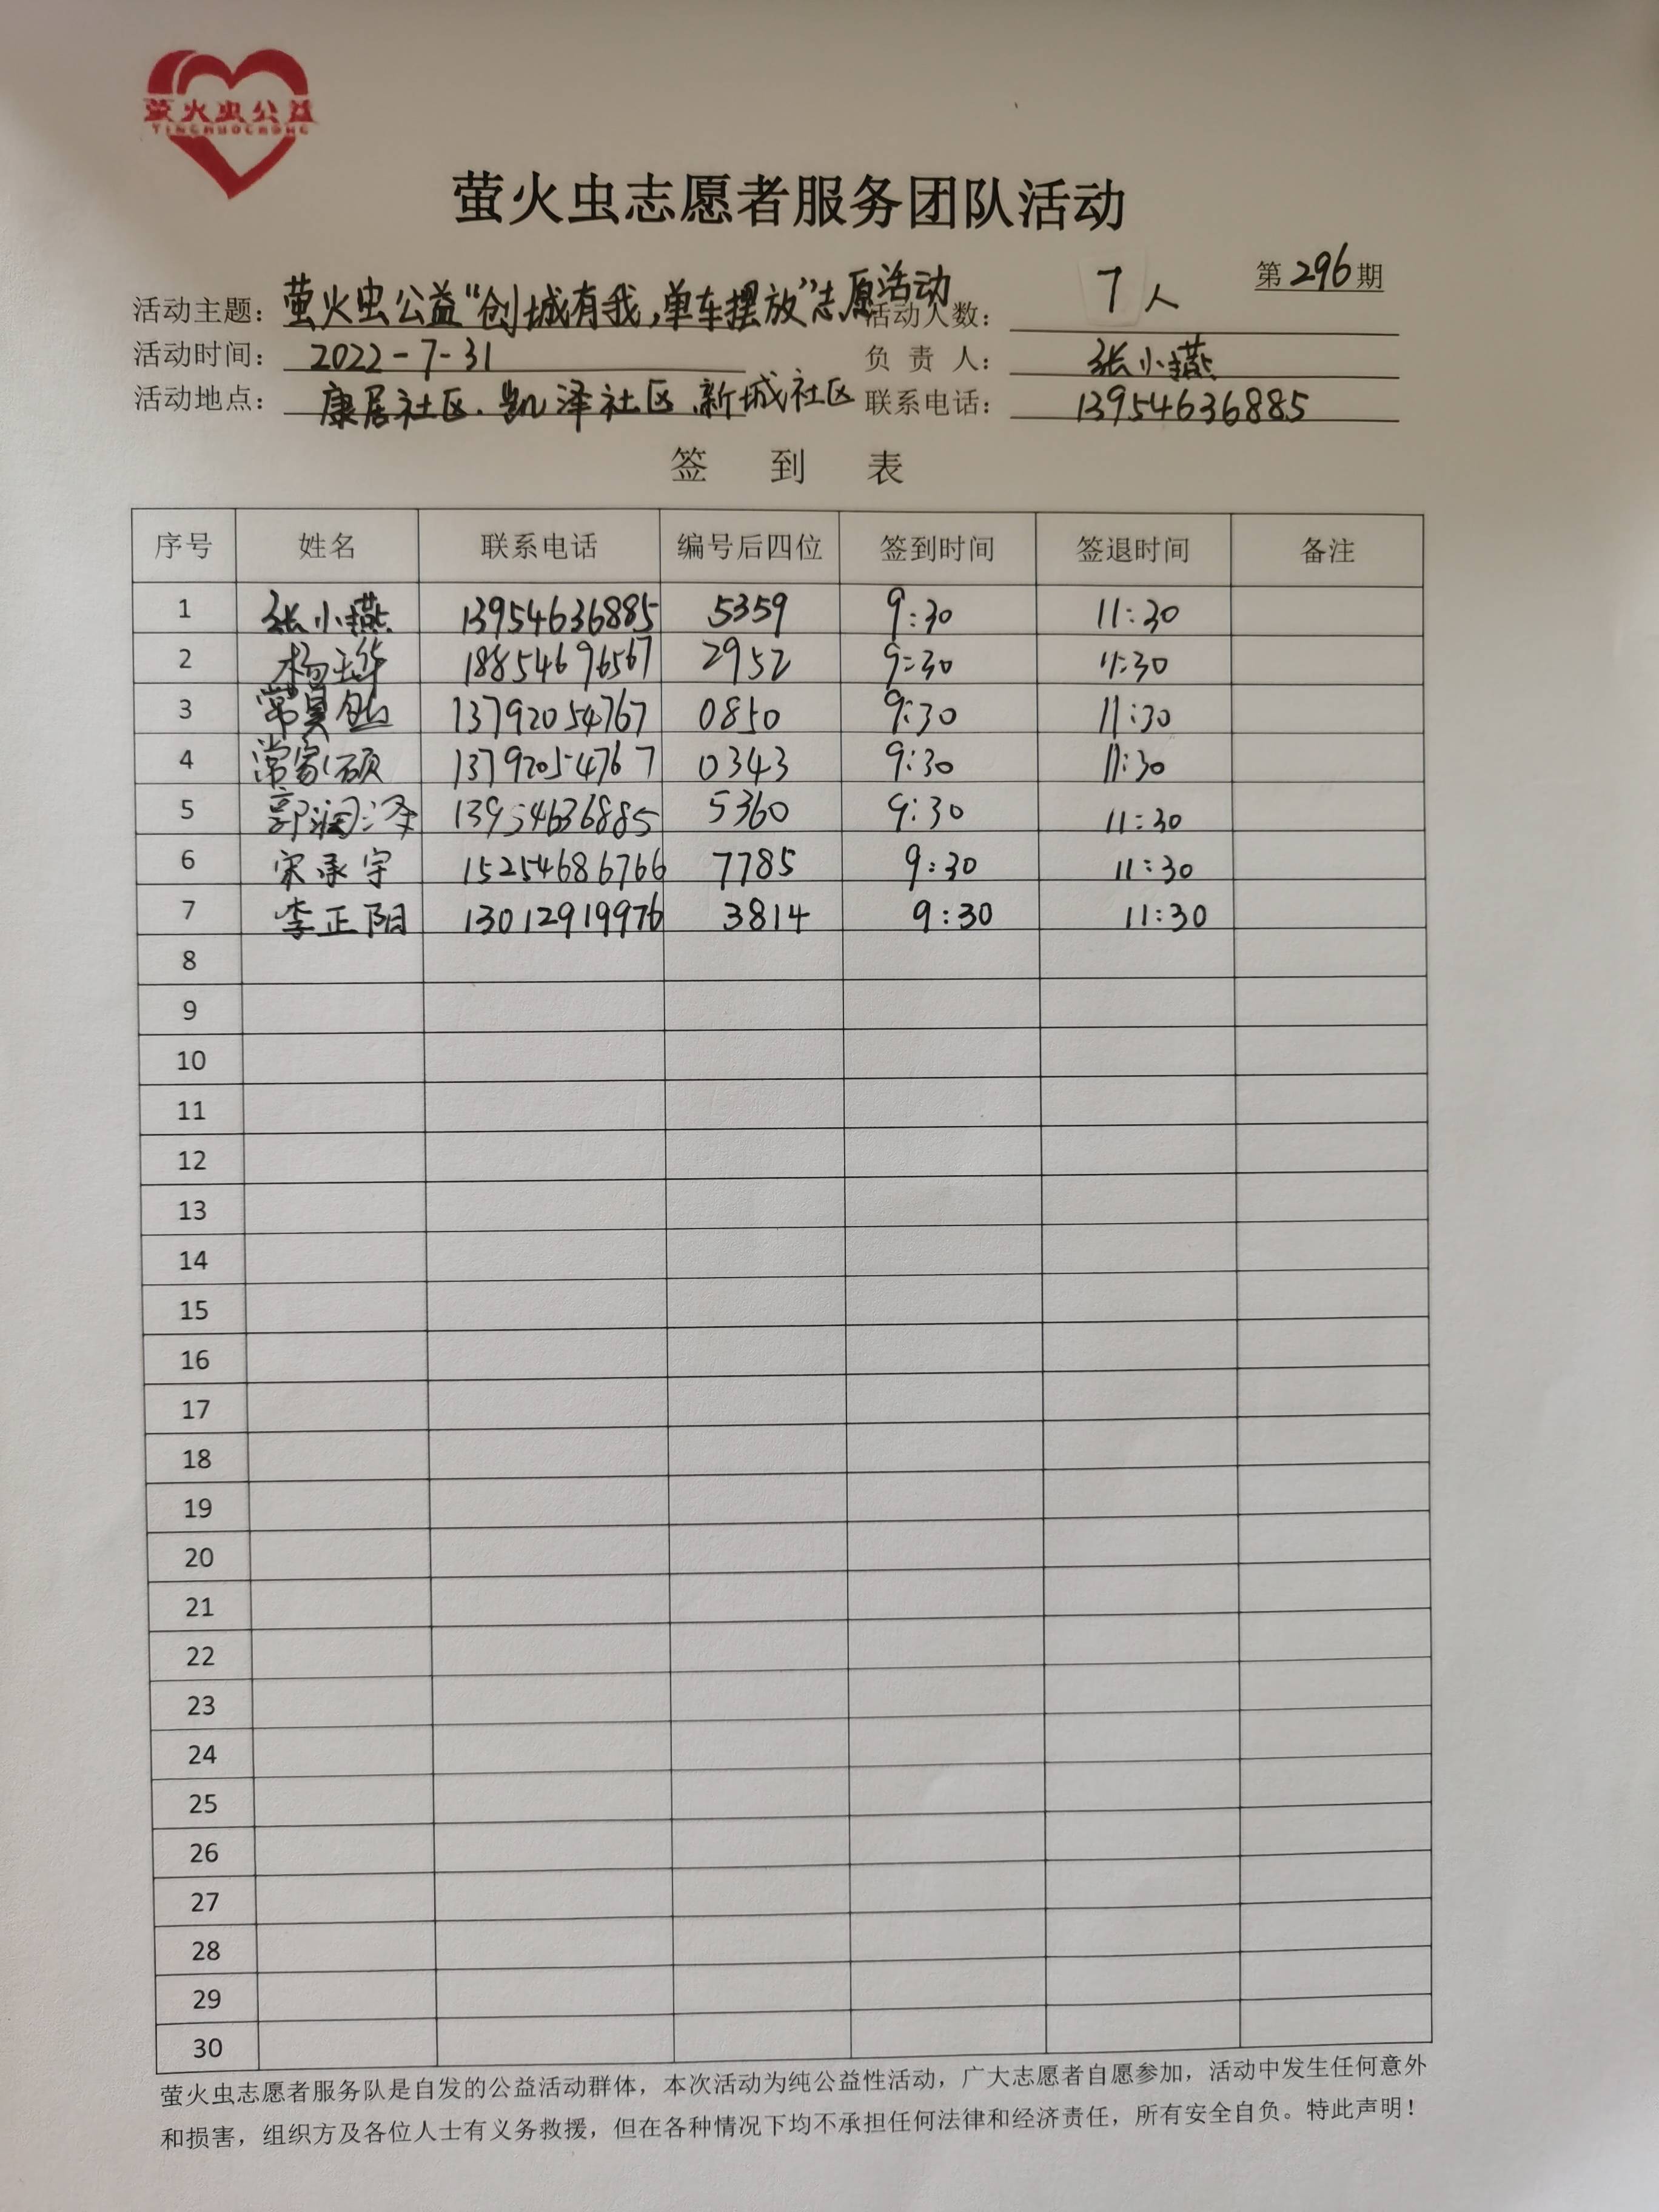 萤火虫公益
YINGHUOCHONG
萤火虫志愿者服务团队活动
第296期
活动主题：萤火虫公益“创城有我,单车摆放”志愿活动 活动人数：7人
活动时间：2022-7-31 负 责 人：张小燕
活动地点：康居社区.凯泽社区.新城社区 联系电话：13954636885
签 到 表
序号 姓名 联系电话 编号后四位 签到时间 签退时间 备注
1 张小燕 13954636885 5359 9:30 11:30
2 杨玉华 18854696567 2952 9:30 11:30
3 常昊 13792054767 0850 9:30 11:30
4 常家硕 13792054767 0343 9:30 11:30
5 郭润泽 13954636885 5360 9:30 11:30
6 宋承宇 15254686766 7785 9:30 11:30
7 李正阳 13012919976 3814 9:30 11:30
8
9
10
11
12
13
14
15
16
17
18
19
20
21
22
23
24
25
26
27
28
29
30
萤火虫志愿者服务队是自发的公益活动群体，本次活动为纯公益性活动，广大志愿者自愿参加，活动中发生任何意外
和损害，组织方及各位人士有义务救援，但在各种情况下均不承担任何法律和经济责任，所有安全自负。特此声明！